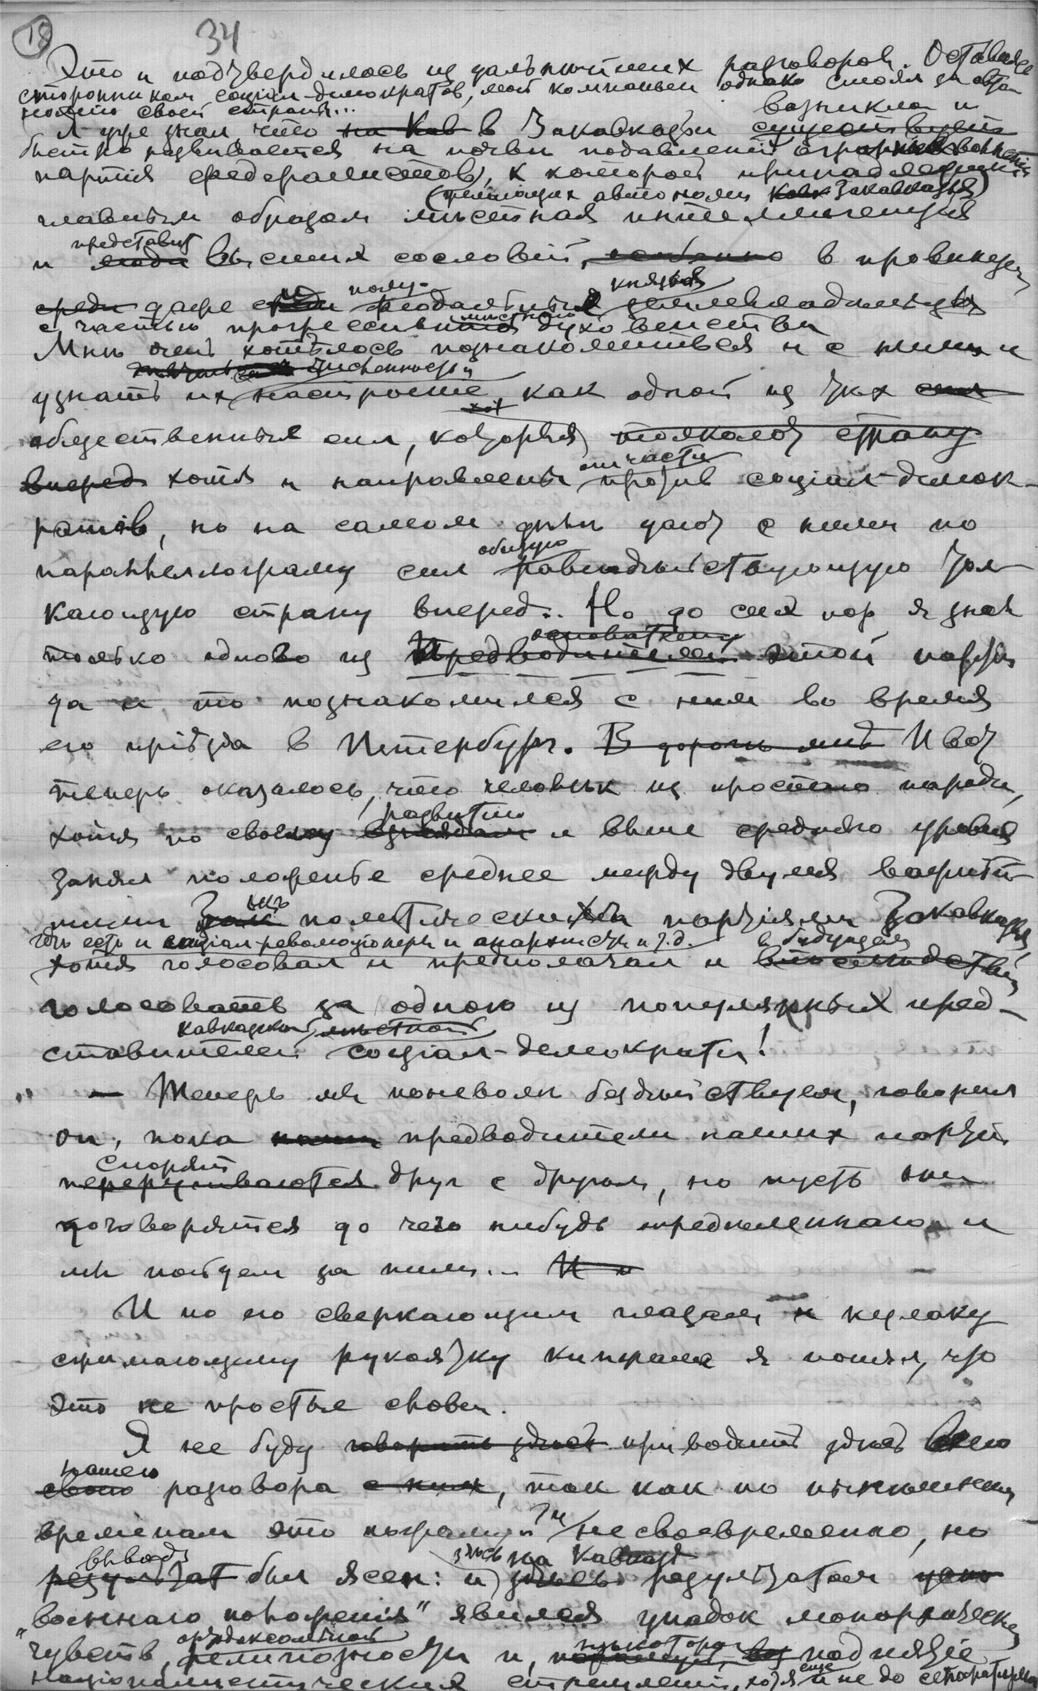 18
34
Это и подтвердилось из дальнѣйших разговоров. Оставаясь
сторонником социал-демократов, мой компаньон однако стоял за авто-
номию своей страны...
Я уже знал, что на Кав в Закавказьи возникла и существует
быстро развивается на почвѣ подавления
партия федералистов, к которой принадлежит
(желающих автономии Кавк Закавказья)
главным образом мѣстная интеллигенция
и люди представит высших сословий, особенно в провинции
среди даже полу-феодальных князья землевладельцы
с частью прогрессивнаго духовенства
Мнѣ очень хотѣлось познакомиться и с ними и
узнать их численность и настроение, как одной из тѣх
общественных сил, которыя толкают страну
вперед хотя и направлены отчасти против социал-демок-
ратов, но на самом дѣлѣ дают с ними по
параллелограму сил общую равнодѣйствующую тол-
кающую страну вперед... Но до сих пор я знал
только одного из предводителей основателя этой партии
да и то познакомился с ним во время
его приѣзда в Петербург. В дорогѣ мнѣ И вот
теперь оказалось, что человѣк из простого народа,
хотя по своему развитию и выше средняго уровня
занял положенье среднее между двумя важнѣй-
шими политическими партиями Закавказья,
гдѣ есть и социал-революционеры и анархисты и т.д.
хотя голосовал и предполагал и в будущем впослѣдствии
голосовать за одного из популярных пред-
ставителей кавказской мѣстной социал-демократии!
— Теперь мы поневолѣ бездѣйствуем, говорил
он, пока предводители наших партий
спорят переругиваются друг с другом, но пусть они
договорятся до чего нибудь опредѣленнаго и
мы пойдем за ними... И
И по его сверкающим глазам и кулаку
сжимающему рукоятку кинжала я понял, что
это не простые слова.
Я не буду говорить здѣсь приводить здѣсь всего
нашего своего разговора с ним, так как по нынѣшним
временам это пожалуй и несвоевременно, но
вывод результат был ясен: и здѣсь на Кавказѣ результатом
"военнаго поражения" явился упадок монархических
чувств, ортодоксальной религиозности и, нѣкоторое поднятие
националистических стремлений, хотя еще и не до сепаратизма